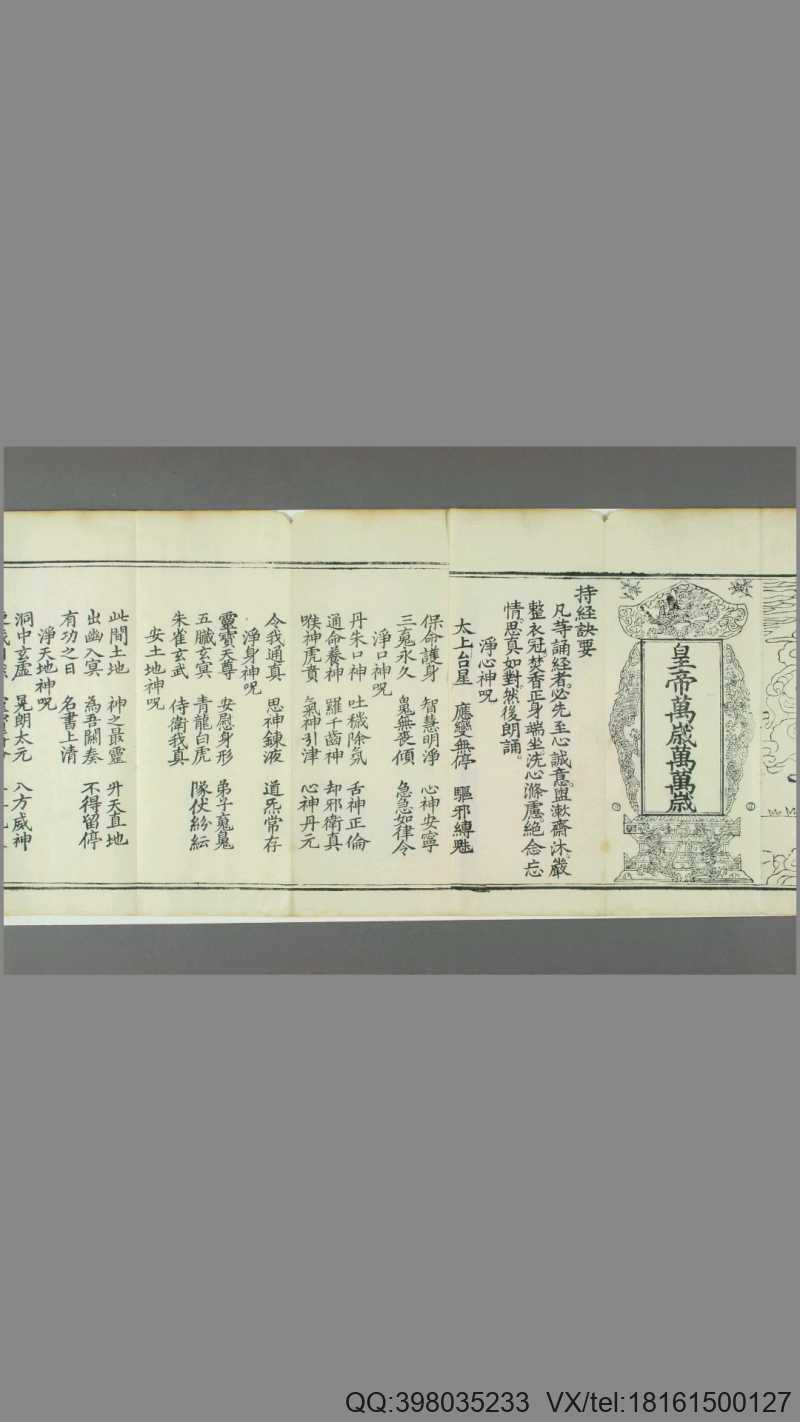 皇帝萬歲萬萬歲
持經訣要
凡等誦經者必先至心誠意盥漱齋沐嚴
整衣冠焚香正身端坐洗心滌慮絕念忘
情思真如對然後朗誦
淨心神呪
太上台星 應變無停 驅邪縛鬽
保命護身 智慧明淨 心神安寧
三䰟永久 鬼無喪傾 急急如律令
淨口神呪
丹朱口神 吐穢除氛 舌神正倫
通命養神 羅千齒神 却邪衛真
喉神虎賁 氣神引津 心神丹元
令我通真 思神鍊液 道炁常存
淨身神呪
靈寶天尊 安慰身形 弟子䰟䰟
五臟玄冥 青龍白虎 隊伏紛紜
朱雀玄武 侍衛我真
安土地神呪
此間土地 神之最靈 升天直地
出幽入冥 為吾關奏 不得留停
有功之日 名書上清
淨天地神呪
洞中玄虛 晃朗太元 八方威神
QQ:398035233 VX/tel:18161500127